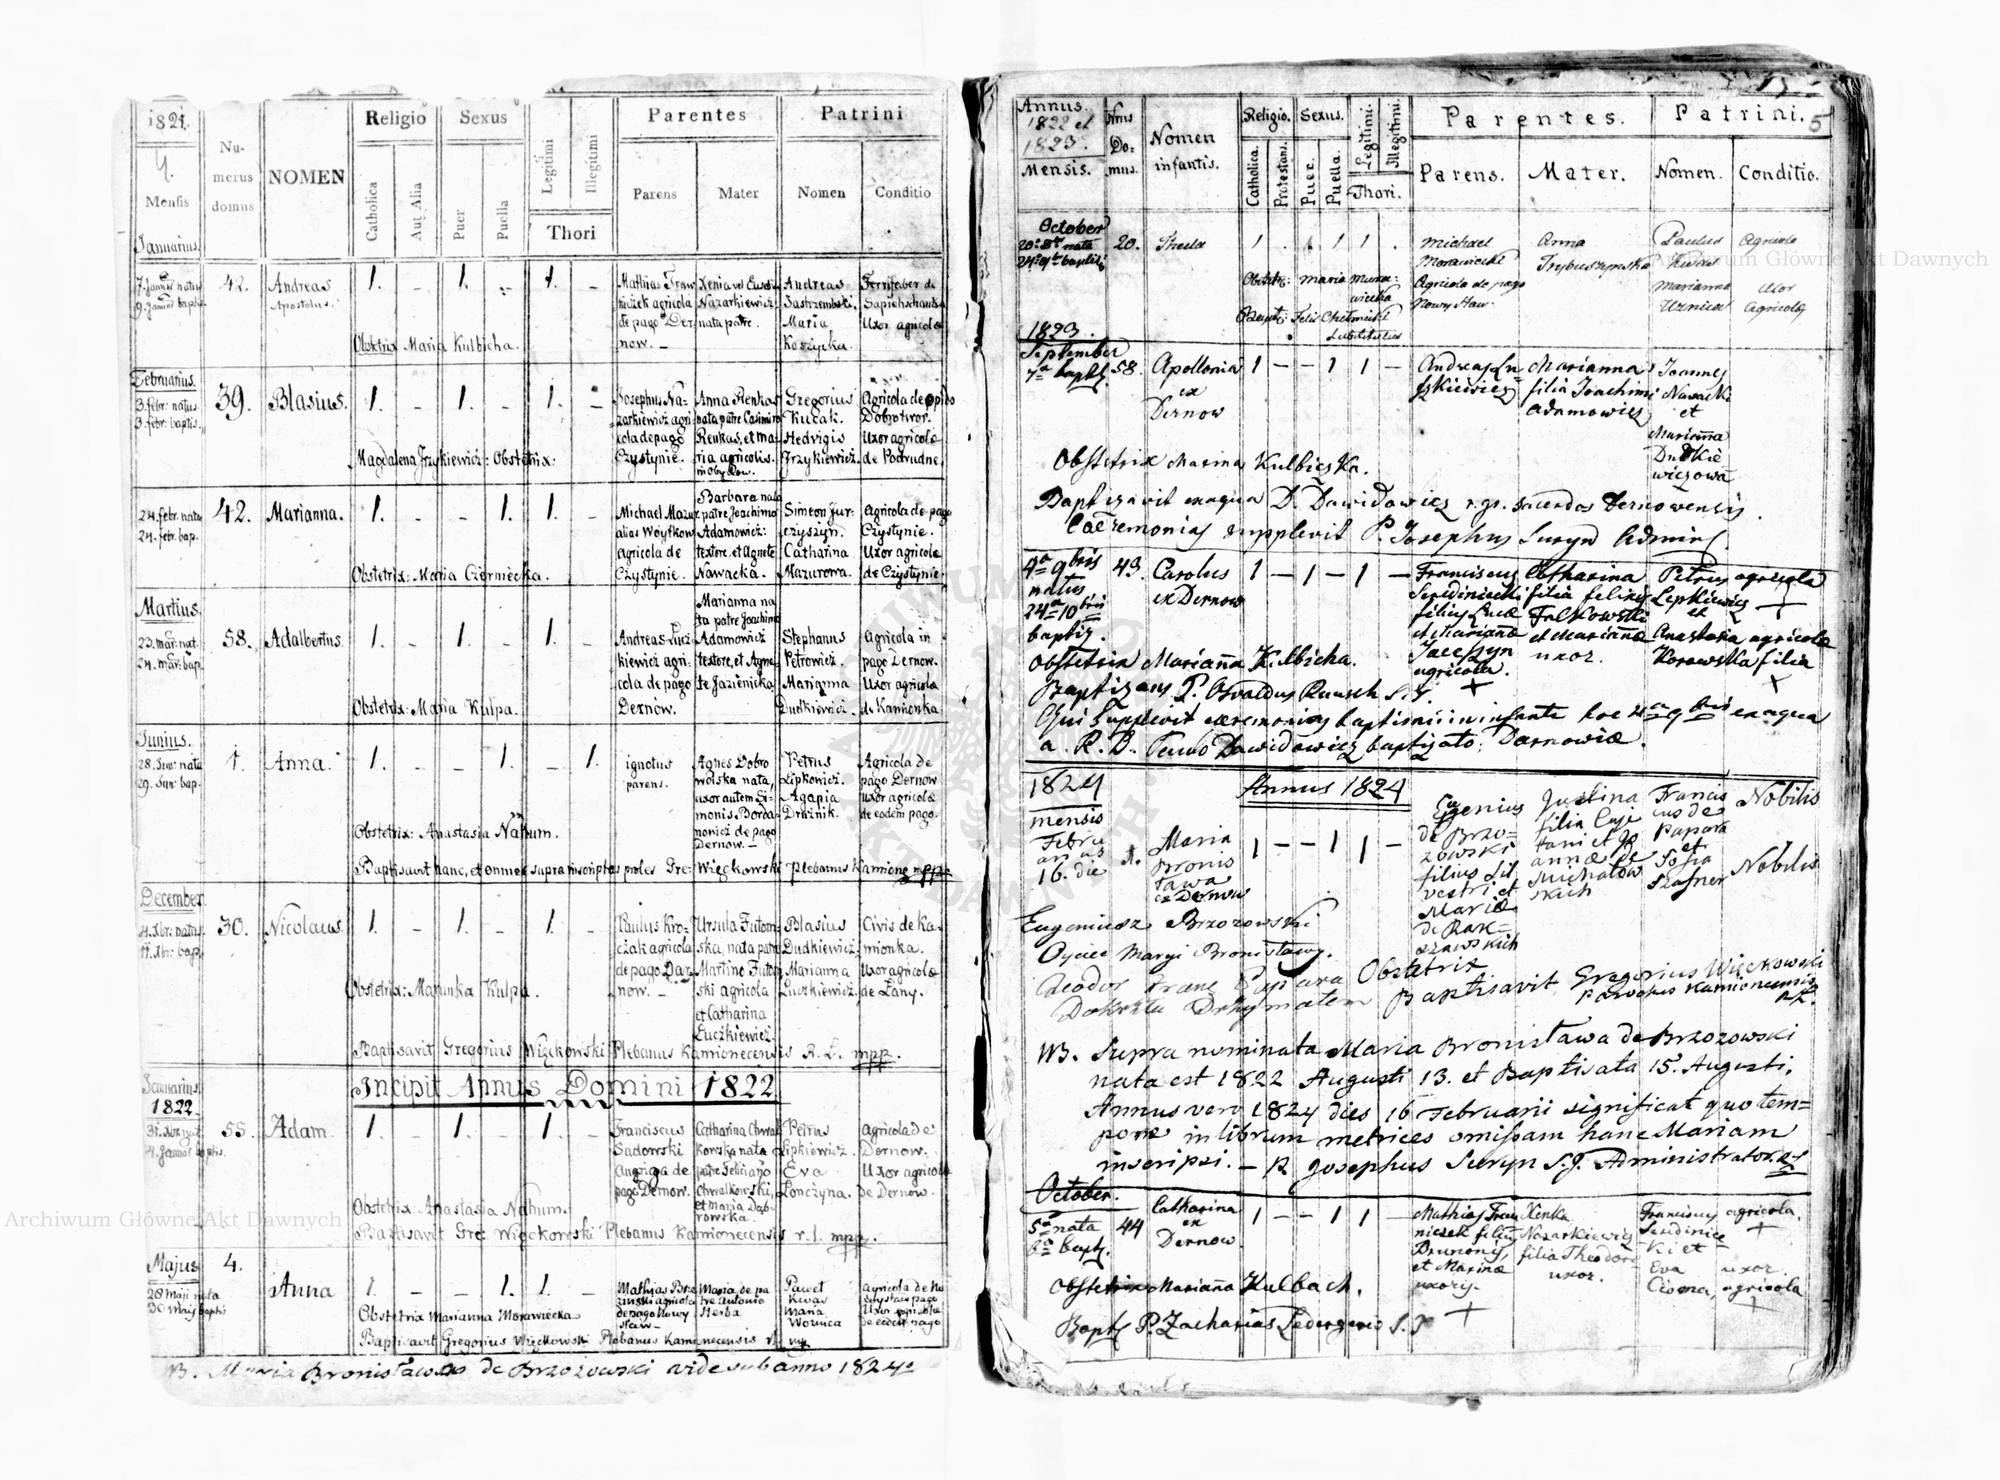 1821.
4.
Mensis
Numerus domus
NOMEN
Religio
Catholica
Aut Alia
Sexus
Puer
Puella
Legitimi
Illegitimi
Thori
Parentes
Parens
Mater
Patrini
Nomen
Conditio
Januarius.
42. Andreas 1. _ 1. 1.
Apostolus.
Andreas
Ferrifaber de
Maria
Uxor agricolæ
Koszycka.
de pago Der
nata patre.
now. _
Obstetrix Maria Kulbicha.
Februarius.
3. febr: natus
3. febr: baptis.
39. Blasius. 1. _ 1. _ 1. _
Josephus Na-
zarkiewicz agri-
cola de pago
Czystynie.
Anna Renkas
nata patre Casimiro
Renkas, et Ma-
ria agricolis.
Gregorius
Kucak.
Hedvigis
Jrzykiewicz.
Agricola de opido
Dobrotwor.
Uxor agricolæ
de Podrudne.
Magdalena Jrzykiewicz: Obstetrix:
24. febr. nata
24. febr. bap.
42. Marianna. 1. _ _ 1. 1.
Michael Mazur
alias Woytkow
agricola de
Czystynie.
Barbara nata
patre Joachimo
Adamowicz:
textore, et Agnete
Nawacka.
Simeon Jur-
czyszyn.
Catharina
Mazurowa.
Agricola de pago
Czystynie.
Uxor agricolæ
de Czystynie.
Obstetrix: Maria Czerniecka.
Martius.
23. mar: nat.
24. mar: bap.
58. Adalbertus 1. _ 1. _ 1.
Andreas Łucz-
kiewicz agri-
cola de pago
Dernow.
Marianna na
ta patre Joachim
Adamowicz
textore, et Agne-
te Jazienicka.
Stephanus
Petrowicz.
Marianna
Dudkiewicz.
Agricola in
pago Dernow.
Uxor agricola
de Kamionka
Obstetrix: Maria Kulpa.
Junius.
28. Jun: nata
29. Jun: bap.
1. Anna. 1. _ _ 1. _ 1.
ignotus
parens.
Agnes Dobro
wolska nata,
uxor autem Si-
monis Borda-
monicz de pago
Dernow. _
Petrus
Lipkowicz.
Agapia
Drużnik.
Agricola de
pago Dernow
Uxor agricolæ
de eodem pago.
Obstetrix: Anastasia Nahum.
Baptisavit hanc, et omnes supra inscriptas proles Gre: Więckowski Plebanus Kamione mpp.
December.
4. Xbr: natus
11. Xbr: bap.
30. Nicolaus. 1. _ 1. _ 1. _
Paulus Kro-
czak agricola
de pago Dar
now. _
Ursula Futom-
ska, nata patre
Martino Futom
ski agricola
et Catharina
Łuczkiewicz.
Blasius
Dudkiewicz.
Marianna
Łuczkiewicz.
Civis de Ka
mionka.
Uxor agricolæ
de Łany.
Obstetrix: Marinka Kulpa.
Baptisavit Gregorius Więckowski Plebanus Kamionecensis R. L. mpp.
Januarius.
1822.
Incipit Annus Domini 1822
31. Xbr nat.
4. Januar baptis.
55. Adam. 1. _ 1. _ 1. _
Franciscus
Sadowski
auriga de
pago Dernow.
Catharina Chwał
kowska nata
patre Feliciano
Chwałkowski,
et maria Dąb-
rowska.
Petrus
Lipkiewicz.
Eva
Łonczyna.
agricola de
Dernow.
Uxor agricolæ
de Dernow.
Obstetrix: Anastasia Nahum.
Baptisavit Gre: Więckowski Plebanus Kamionecensis r. l. mpp.
Majus
28 maji nata
30 maij baptis
4. Anna 1. _ _ 1. 1.
Mathias Brze
zinski agricola
de pago Nowy
Staw _
Maria de pa
tre Antonio
Herba
Paweł
Kwas
Maria
Woznica
Uxor agricolæ
de eodem pago
Obstetrix Marianna Morawiecka
Baptisavit Gregorius Więckowski Plebanus Kamionecensis
NB. Maria Bronisława de Brzozowski vide sub anno 1824o
5
Annus.
1822 et
1823.
Mensis.
Nrus Do-
mus.
Nomen
infantis.
Religio.
Catholica.
Protestans.
Sexus.
Puer.
Puella.
Legitimi.
Illegitimi.
Thori.
Parentes.
Parens.
Mater.
Patrini.
Nomen.
Conditio.
October
20. Thecla 1 . . 1 1 .
Michael
Morawiecki
Agricola de pago
Nowy Staw.
Anna
Trybuszynska
Paulus
Kwas
Marianna
Woznica
Agricola
Uxor
agricolæ
Obstetr: Maria Mora-
wiecka
Bapt: Felix Chelmicki
Substitutus
1823.
September
7a bapt.
58. Apollonia 1 _ _ 1 1 _
ex
Dernow
Andreas Łu-
czkiewicz
Marianna
filia Joachimi
Adamowicz
Joannes
Nawacki
et
Marianna
Dudkie
wiczowa
Obstetrix Marina Kulbicska.
Baptizavit ex aqua D. Dawidowicz r. gr. sacerdos Dernowensis.
Caeremonias supplevit P. Josephus Suryn Admins.
4a 9bris
natus
24a 10bris
baptiz.
43. Carolus 1 _ 1 _ 1 _
ex Dernow
Franciscus
filius Lucæ
et Mariannæ
agricola.
Catharina
filia Felixis
Falkowski
et Mariannæ
uxor.
Petrus agricola
Lepkiewicz +
et
Anastasia agricolæ
Korowska filia
+
Obstetrix Marianna Kulbicha.
Baptizans P. Osvaldus Rausch S. J.
Qui supplevit ceremonias baptismi in infante hoc 4a 9bris ex aqua
a. R. D. Dawidowicz baptizato, Darnowiæ.
1824
mensis
Febru
arius
16. die
Annus 1824
1. Maria 1 _ _ 1 1 _
Bronis
ława
ex Dernow
Eugenius
de Brzo-
zowski
filius Sil
vestri et
Mariæ
de Rak-
szawskich
Justina
filia Caje
tani et Jo
annæ de
Michałow
skich
Francis
cus de
Papara
et
Sofia
Szafner
Nobilis
Nobilis
Eugeniusz Brzozowski
Oyciec Maryi Bronisławy.
Teodor Franc Papara
Obstetrix
Baptisavit Gregorius Więckowski
Parochus Kamionecensis
NB. Supra nominata Maria Bronisława de Brzozowski
nata est 1822 Augusti 13. et Baptisata 15. Augusti,
Annus vero 1824 dies 16 Februarii significat quo tem=
pore in librum metrices omissam hanc Mariam
inscripsi. _ R Josephus Suryn S. J. Administrator
October.
5a nata
44 Catharina 1 _ _ 1 1 _
ex
Dernow.
Mathias Fran
ciszek filius
Brunonis
et Marinæ
uxoris.
Xenka
Nazarkiewicz
filia Theodori
uxor.
Franciscus agricola.
+
Eva uxor
agricola
+
Obstetrix Marianna Kulbach.
Bapts P. Zacharias Ledergerw S. J. +
Archiwum Główne Akt Dawnych
Archiwum Główne Akt Dawnych
ARCHIWUM GŁÓWNE AKT DAWNYCH